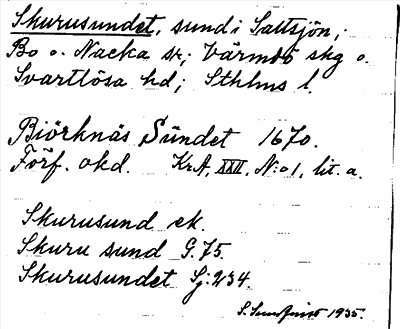 Skurusundet, sund i Saltsjön,
Bo o. Nacka sr; Värmdö skg o.
Svartlösa hd; Sthlms l.
Biörknäs Sündet 1670.
Förf. okd. KrA, XXII, N:o 1, lit. a.
Skurusund ek.
Skuru sund G.75.
Skurusundet Sj:234.
S. 1935.